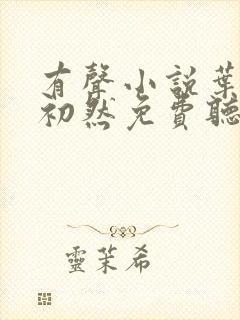 有聲小說葉
初然免費聽
靈茉希